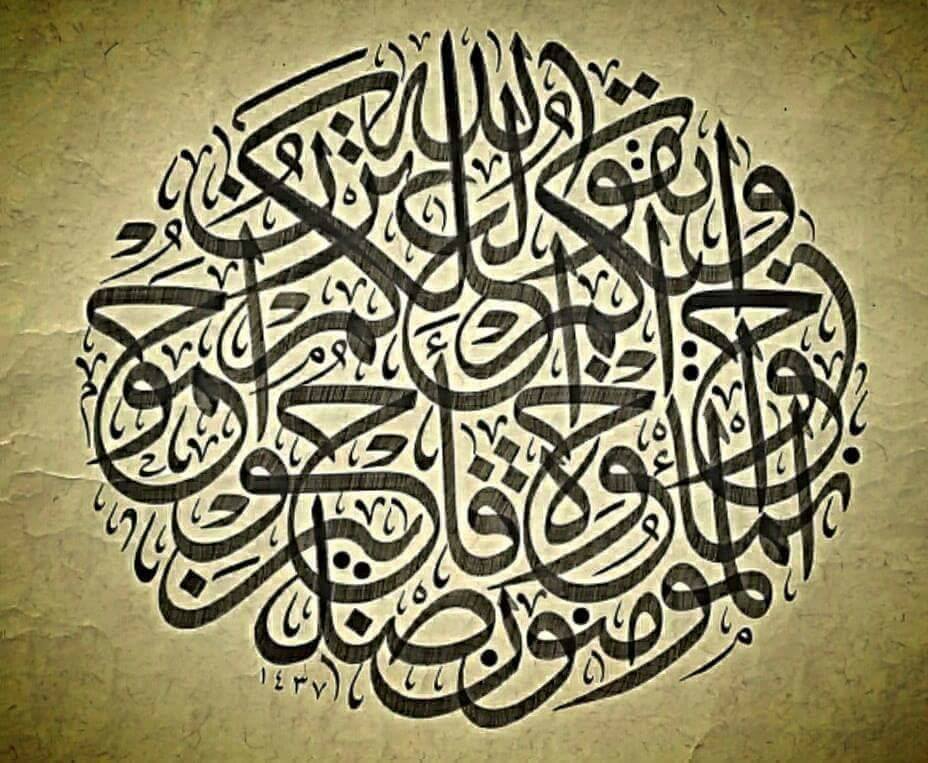 إنما المؤمنون إخوة فأصلحوا بين أخويكم واتقوا الله لعلكم ترحمون
١٤٣٧